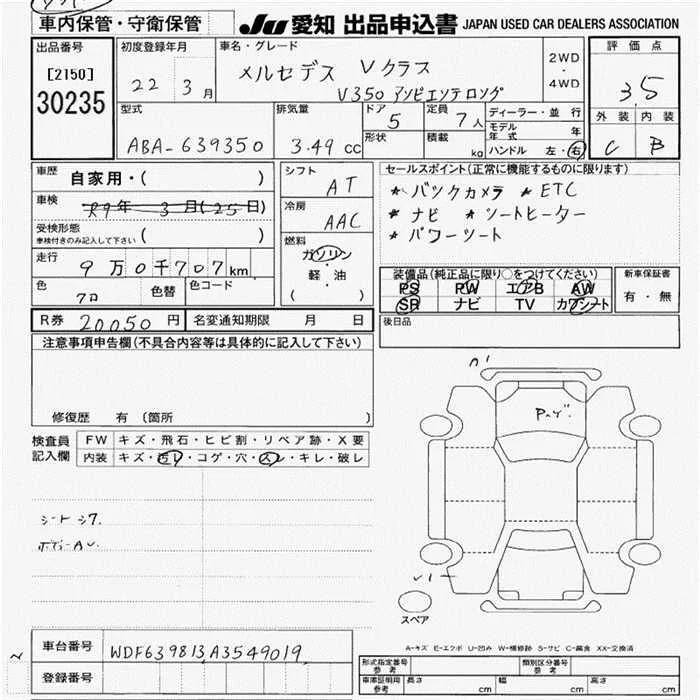 車内保管・守衛保管
JU 愛知 出品申込書 JAPAN USED CAR DEALERS ASSOCIATION
出品番号
[2150]
30235
初度登録年月
22 3月
車名・グレード
メルセデス Vクラス
V350 アンビエンテロング
2WD
・
4WD
評価点
3.5
外装 内装
C B
型式
ABA-639350
排気量
3.49 cc
ドア
5
定員
7人
形状
積載
kg
ディーラー・並行
モデル年式 年
ハンドル 左・右
車歴
自家用・( )
車検
R9年 3月(25日)
受検形態
車検付きのみ記入して下さい ( )
走行
9万0千707km
色
クロ
色替
色コード
シフト
AT
冷房
AAC
燃料
ガソリン
・
軽・油
( )
セールスポイント(正常に機能するものに限ります)
* バックカメラ * ETC
* ナビ * シートヒーター
* パワーシート
装備品(純正品に限り○をつけてください)
PS PW エアB AW
SR ナビ TV カワシート
新車保証書
有・無
後日品
R券 20050 円
名変通知期限 月 日
注意事項申告欄(不具合内容等は具体的に記入して下さい)
修復歴 有 (箇所 )
検査員
記入欄
FW キズ・飛石・ヒビ割・リペア跡・X要
内装 キズ・汚レ・コゲ・穴・スレ・キレ・破レ
シートシワ.
ボディーAU.
スペア
A-キズ E-エクボ U-凹み W-補修跡 S-サビ C-腐食 XX-交換済
車台番号
WDF639813A3549019
登録番号
形式指定番号
参考
類別区分番号
参考
車庫証明用
参考
長さ cm
幅 cm
高さ cm